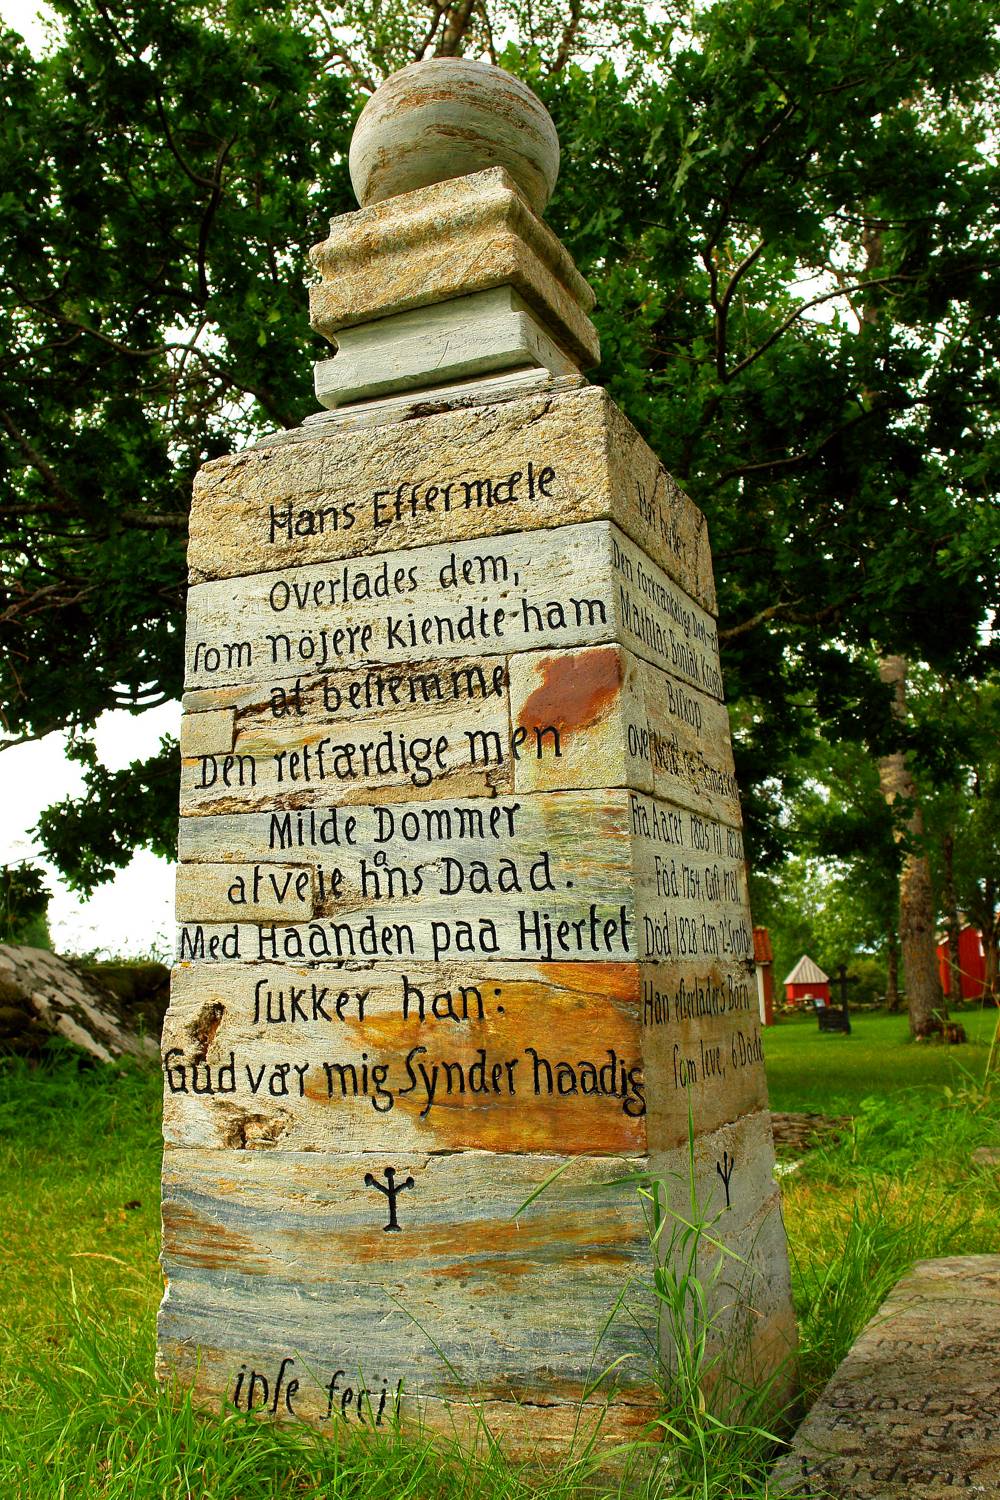 Hans Effermæle
Overlades dem,
ſom nöjere kiendte ham
at beſtemme
Den retfærdige men
Milde Dommer
afveje håns Daad.
Med Haanden paa Hjertet
ſukker han:
Gud vær mig Synder naadig
ipſe fecit
Her hviler
Den forkrænkelige Deel
Mathias Bonſak Krog
Biſkop
over Nord og Finmarken
Fra Aaret 1805 til
Föd 1754. Gift
Död 1828 den 2 Septbr
Han efterlader 5 Börn
ſom leve, 6 Döde
Verdens